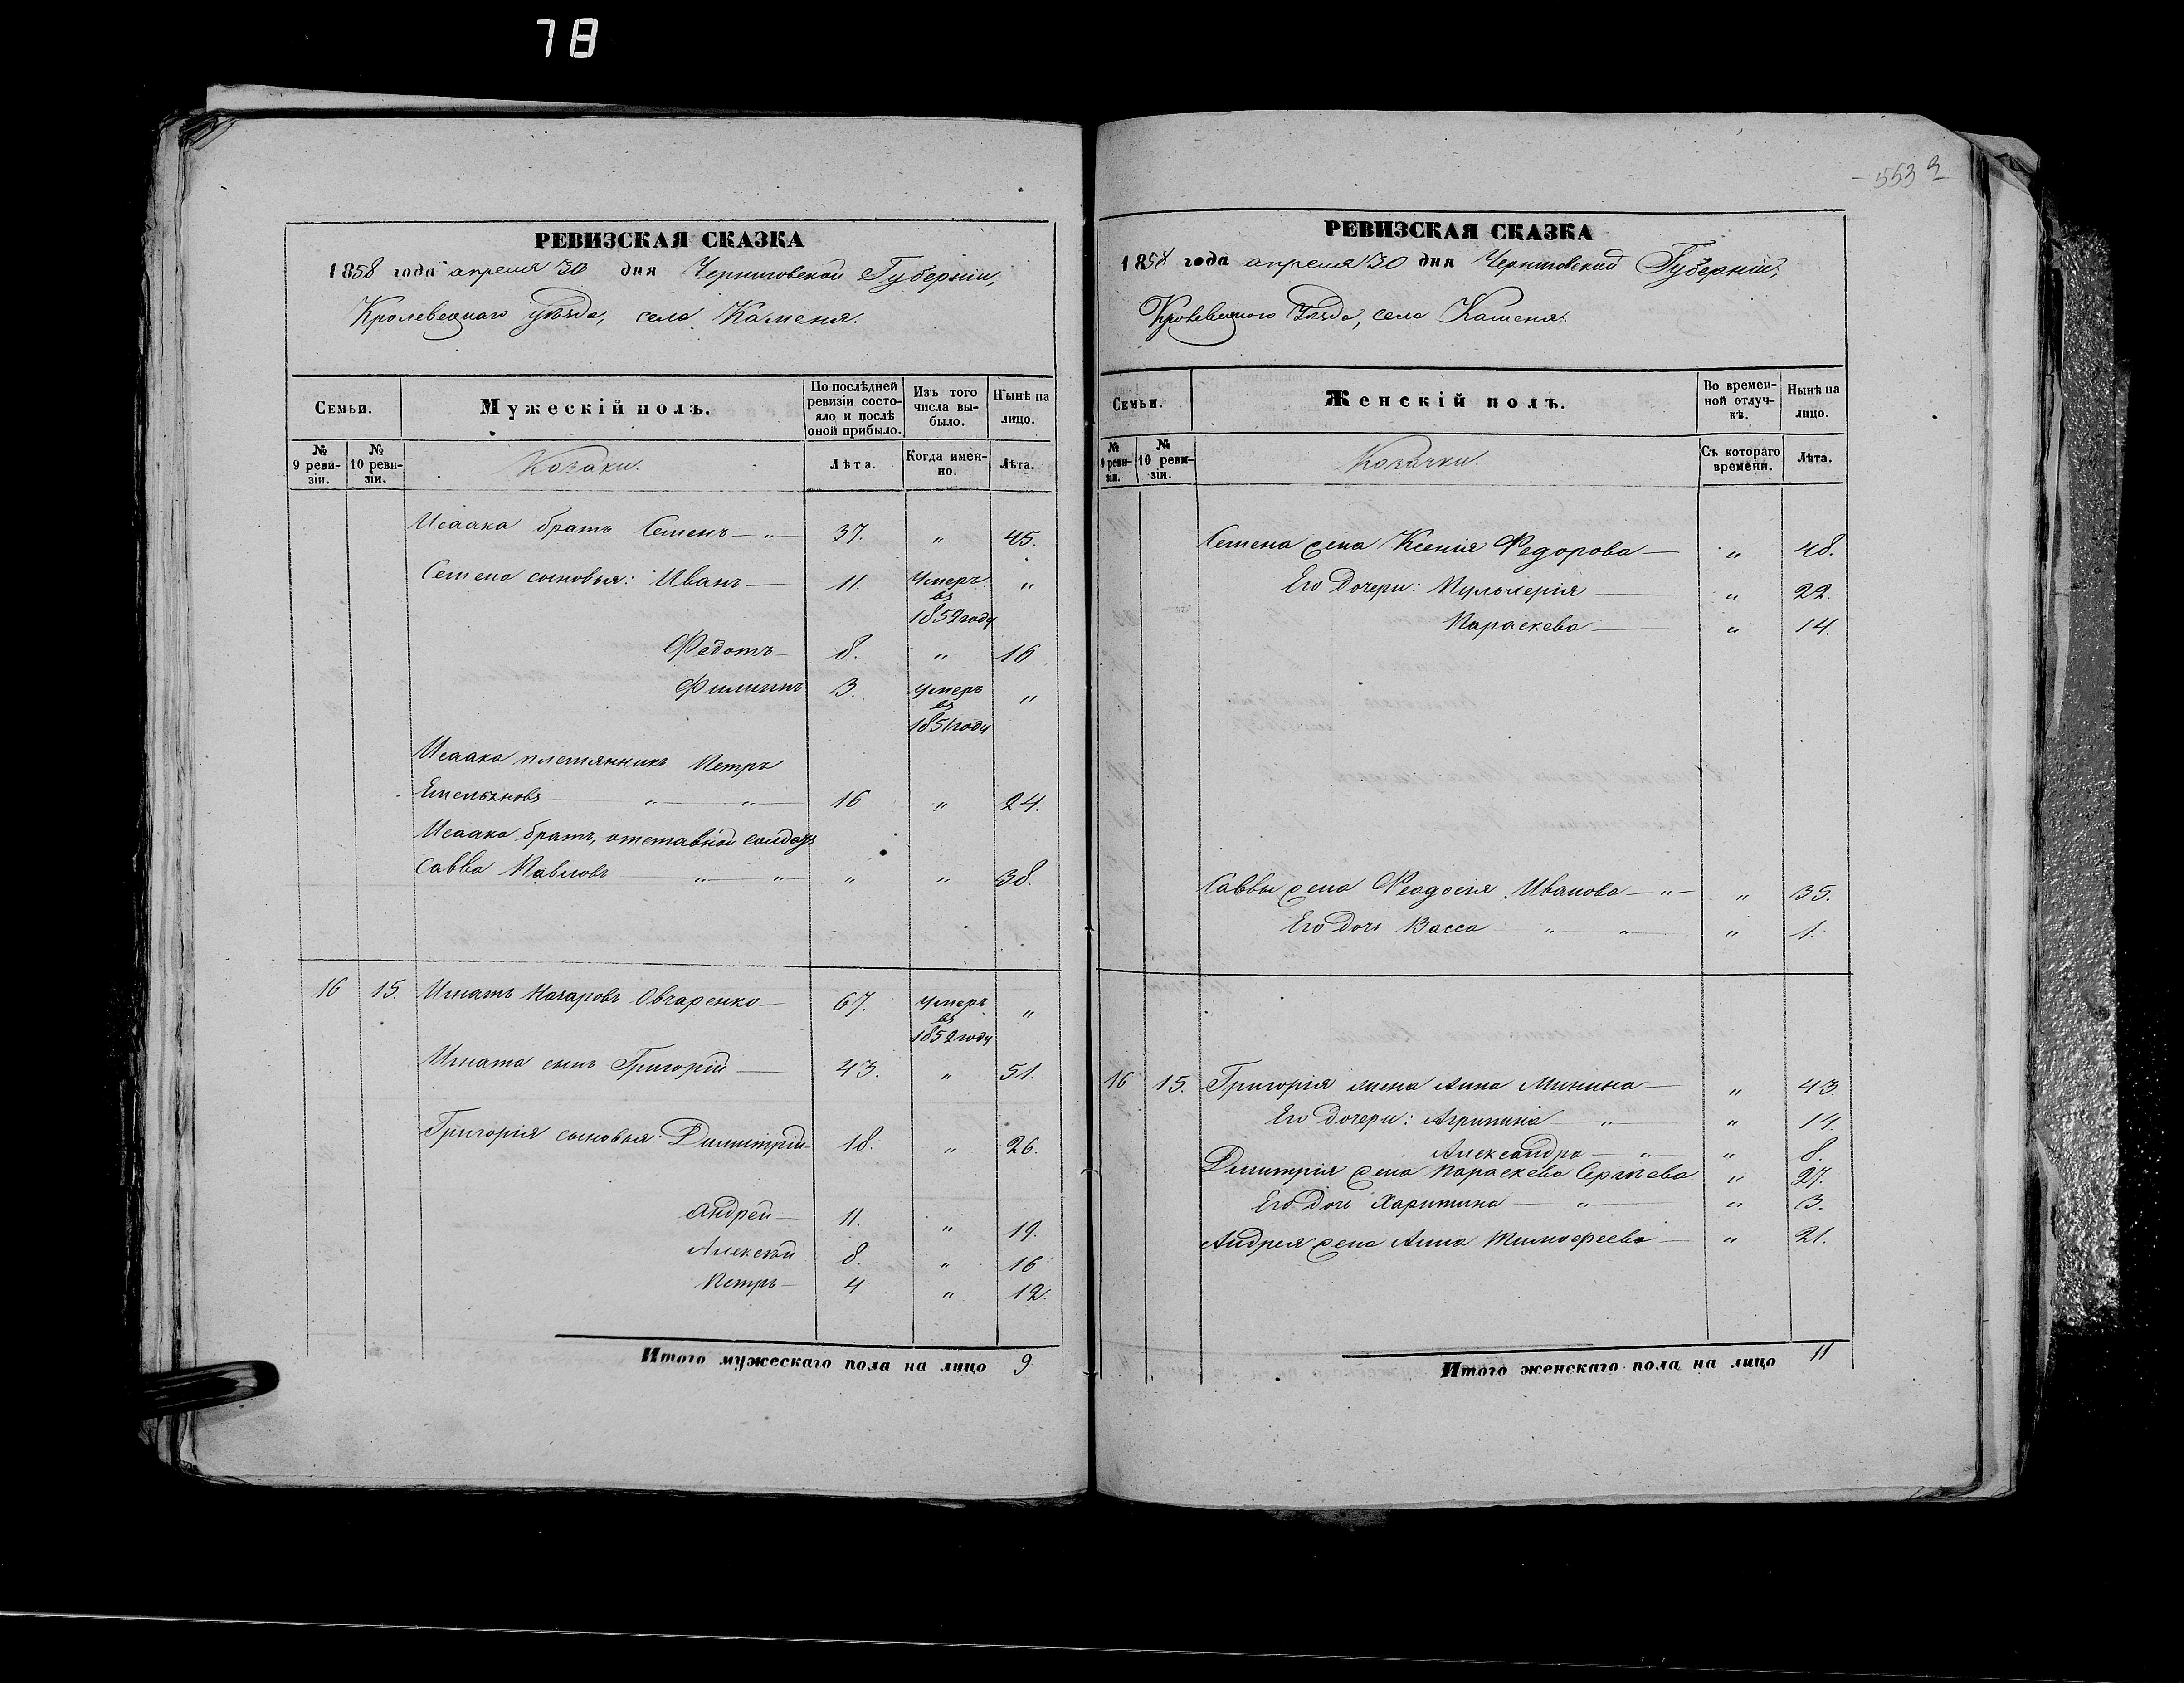 78
РЕВИЗСКАЯ СКАЗКА
1858 года апреля 30 дня Черниговской Губерніи,
Кролевецкаго уѣзда, села Каменя.
Семьи.
Мужескій полъ.
По послѣдней ревизіи состояло и послѣ оной прибыло.
Изъ того числа выбыло.
Нынѣ на лицо.
№ 9 ревизіи.
№ 10 ревизіи.
Козаки.
Лѣта.
Когда именно.
Лѣта.
Исаака братъ Семенъ — „ — 37. „ 45.
Семена сыновья: Иванъ — 11. Умеръ въ 1852 году „
Федотъ — 8. „ 16
Филиппъ 3. Умеръ въ 1851 году „
Исаака племянникъ Петръ
Емельяновъ — „ — „ — 16 „ 24.
Исаака братъ, отставной солдатъ
Савва Павловъ — „ — „ — „ „ 38.
16 15. Игнатъ Назаровъ Овчаренко — 67. умеръ въ 1852 году „
Игната сынъ Григорій — 43. „ 51.
Григорія сыновья: Димитрій — 18. „ 26.
Андрей — 11. „ 19.
Алексѣй 8. „ 16
Петръ — 4 „ 12.
Итого мужескаго пола на лицо 9
553
РЕВИЗСКАЯ СКАЗКА
1858 года апреля 30 дня Черниговской Губерніи,
Кролевецкого Уѣзда, села Каменя.
Семьи.
Женскій полъ.
Во временной отлучкѣ.
Нынѣ на лицо.
№ 9 ревизіи.
№ 10 ревизіи.
Козачки.
Съ котораго времени.
Лѣта.
Семена жена Ксенія Федорова — „ 48.
Его дочери: Пульхерія — „ 22.
Параскева — „ 14.
Саввы жена Феодосія Иванова — „ — „ 35.
Его дочь Васса „ — „ — „ 1.
16 15. Григорія жена Анна Минина — „ 43.
Его дочери: Агрипина — „ — „ 14.
Александра — „ — „ 8.
Дмитрія жена Параскева Сергѣева „ 27.
Его дочь Харитина — „ — „ 3.
Андрея жена Анна Тимофеева — „ 21.
Итого женскаго пола на лицо 11